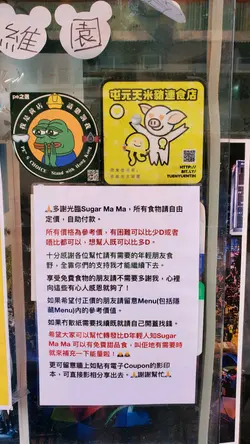 維 園
屯元天米雞連食店
HTTP://
BIT.LY/
Stand with Hong Kong
🙏多謝光臨Sugar Ma Ma、所有食物請自由
定價，自助付款。
所有價格為參考價，有困難可以比少D或者
唔比都可以，想幫人既可以比多D。
十分感謝各位幫忙請有需要的年輕朋友食
野，全靠你們的支持我才能繼續下去。
享受免費食物的朋友請不需要多謝我，心裡
向這些有心人感恩就夠了！
如果希望付正價的朋友請留意Menu(包括隱
藏Menu)內的參考價值。
如果冇散紙需要找續既就請自己開蓋找錢。
希望大家可以幫忙轉發比D年輕人知Sugar
Ma Ma 可以有免費甜品食，叫佢地有需要時
就來補充一下能量啦！
更可留意牆上如貼有電子Coupon的影印
本，可直接影相分享出去。🙏謝謝幫忙🙏